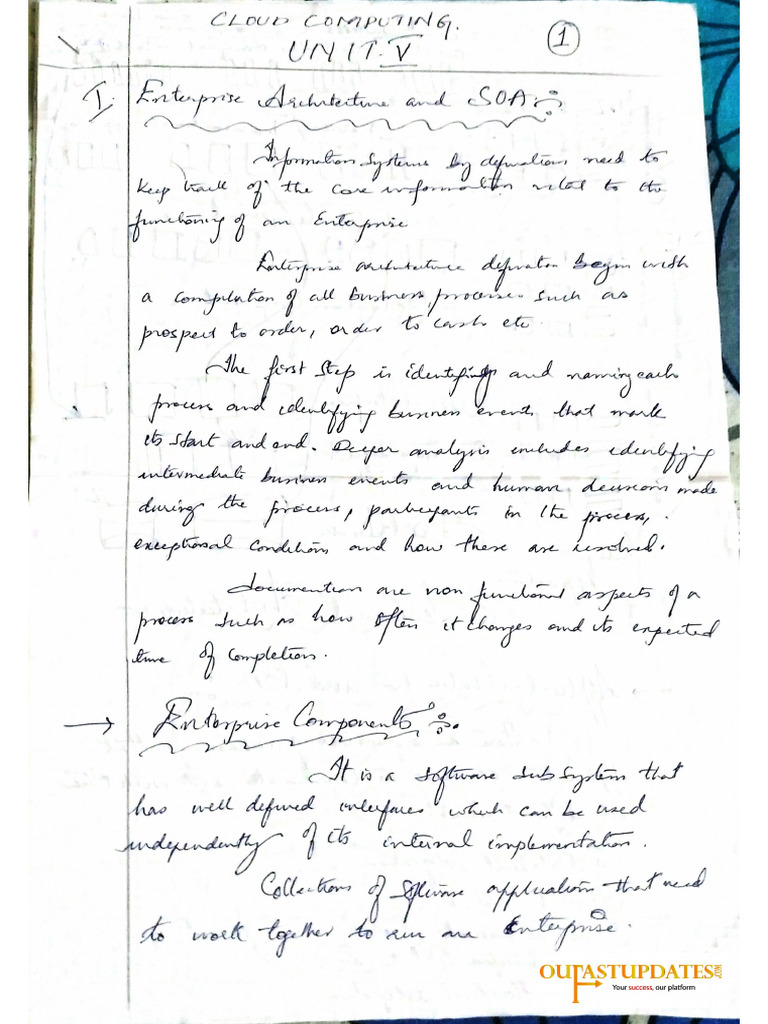 CLOUD COMPUTING.
UNIT-V
1
I. Enterprise Architecture and SOA :-
Information Systems by defination need to
keep track of the core information relat to the
functioning of an Enterprise
Enterprise architecture defination begin with
a compilation of all business processes such as
prospect to order, order to cash etc.
The first step is identifing and naming each
process and identifying business events that mark
its start and end. Deeper analysis includes identifying
intermediate business events and human decisions made
during the process, participants in the process,
exceptional conditions and how these are resolved.
documention are non functional aspects of a
process such as how often it changes and its expected
time of completion.
→ Enterprise Components :-
It is a software subsystem that
has well defined interfaces which can be used
independently of its internal implementation.
Collections of software applications that need
to work together to run an Enterprise.
OURFASTUPDATES.COM
Your success, our platform